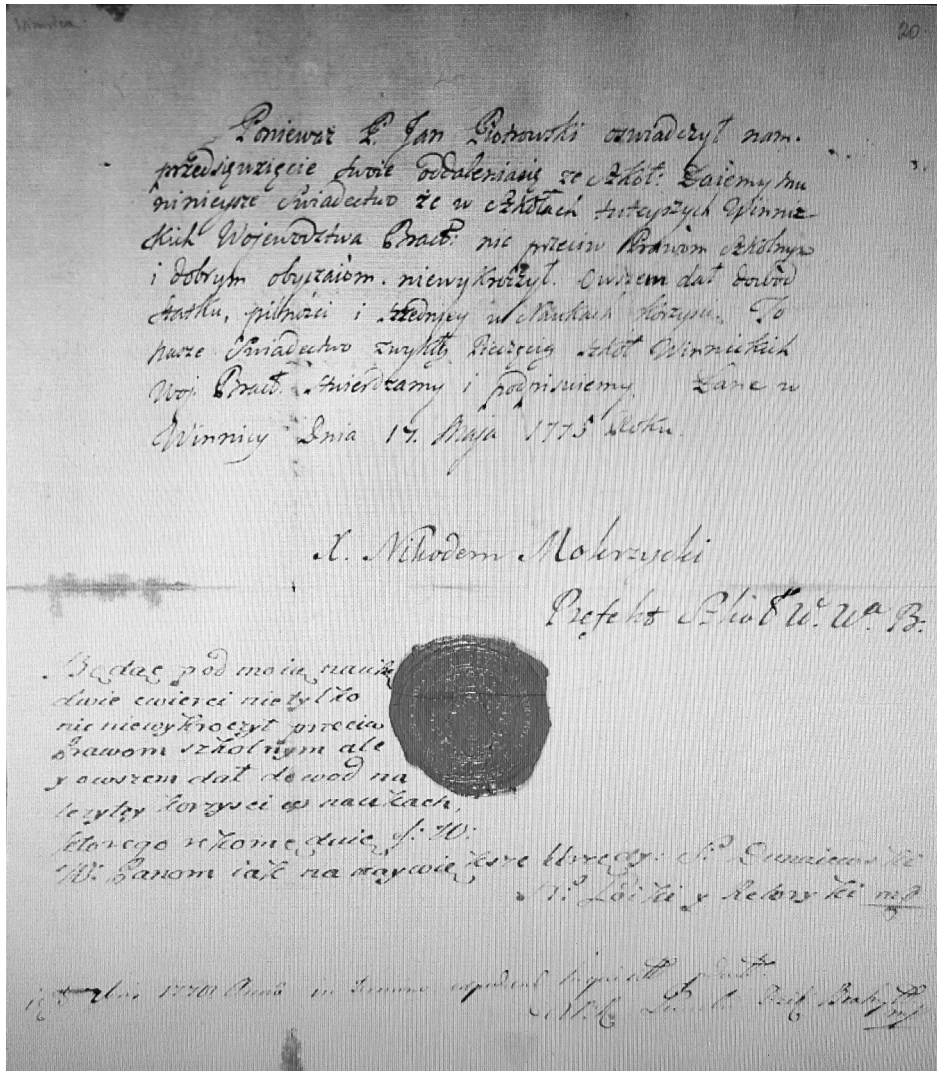 Winnica
20.
Ponieważ P. Jan Piotrowski oswiadczył nam.
przedsięwzięcie swoie oddaleniasię ze Szkół: Dajemy mu
ninieysze Swiadectwo że w Szkołach tuteyszych Winnic-
kich Wojewodztwa Bracł: nic przeciw Prawom Szkolnym
i dobrym obyczaiom. niewykroczył. Owszem dał dowód
statku, pilności i sredniey w Naukach korzysci. To
nasze Swiadectwo zwykłą Pieczęcią Szkół Winnickich
Woj. Bracł. stwierdzamy i podpisuiemy. Dane w
Winnicy Dnia 17. Maja 1775 Roku.
X. Nikodem Mokrzycki
Prefekt Szkoł W. Wa. B.
Będąc pod moią nauką
dwie cwierci nietylko
nic niewykroczył przeciw
Prawom szkolnym ale
y owszem dał dowod na
leżytey korzysci w naukach,
ktorego rekomęduię J: W:
W: Panom iak na naywiększe Urzędy: Dunaiewski
Loiki y Retoryki mp
Anno in termino